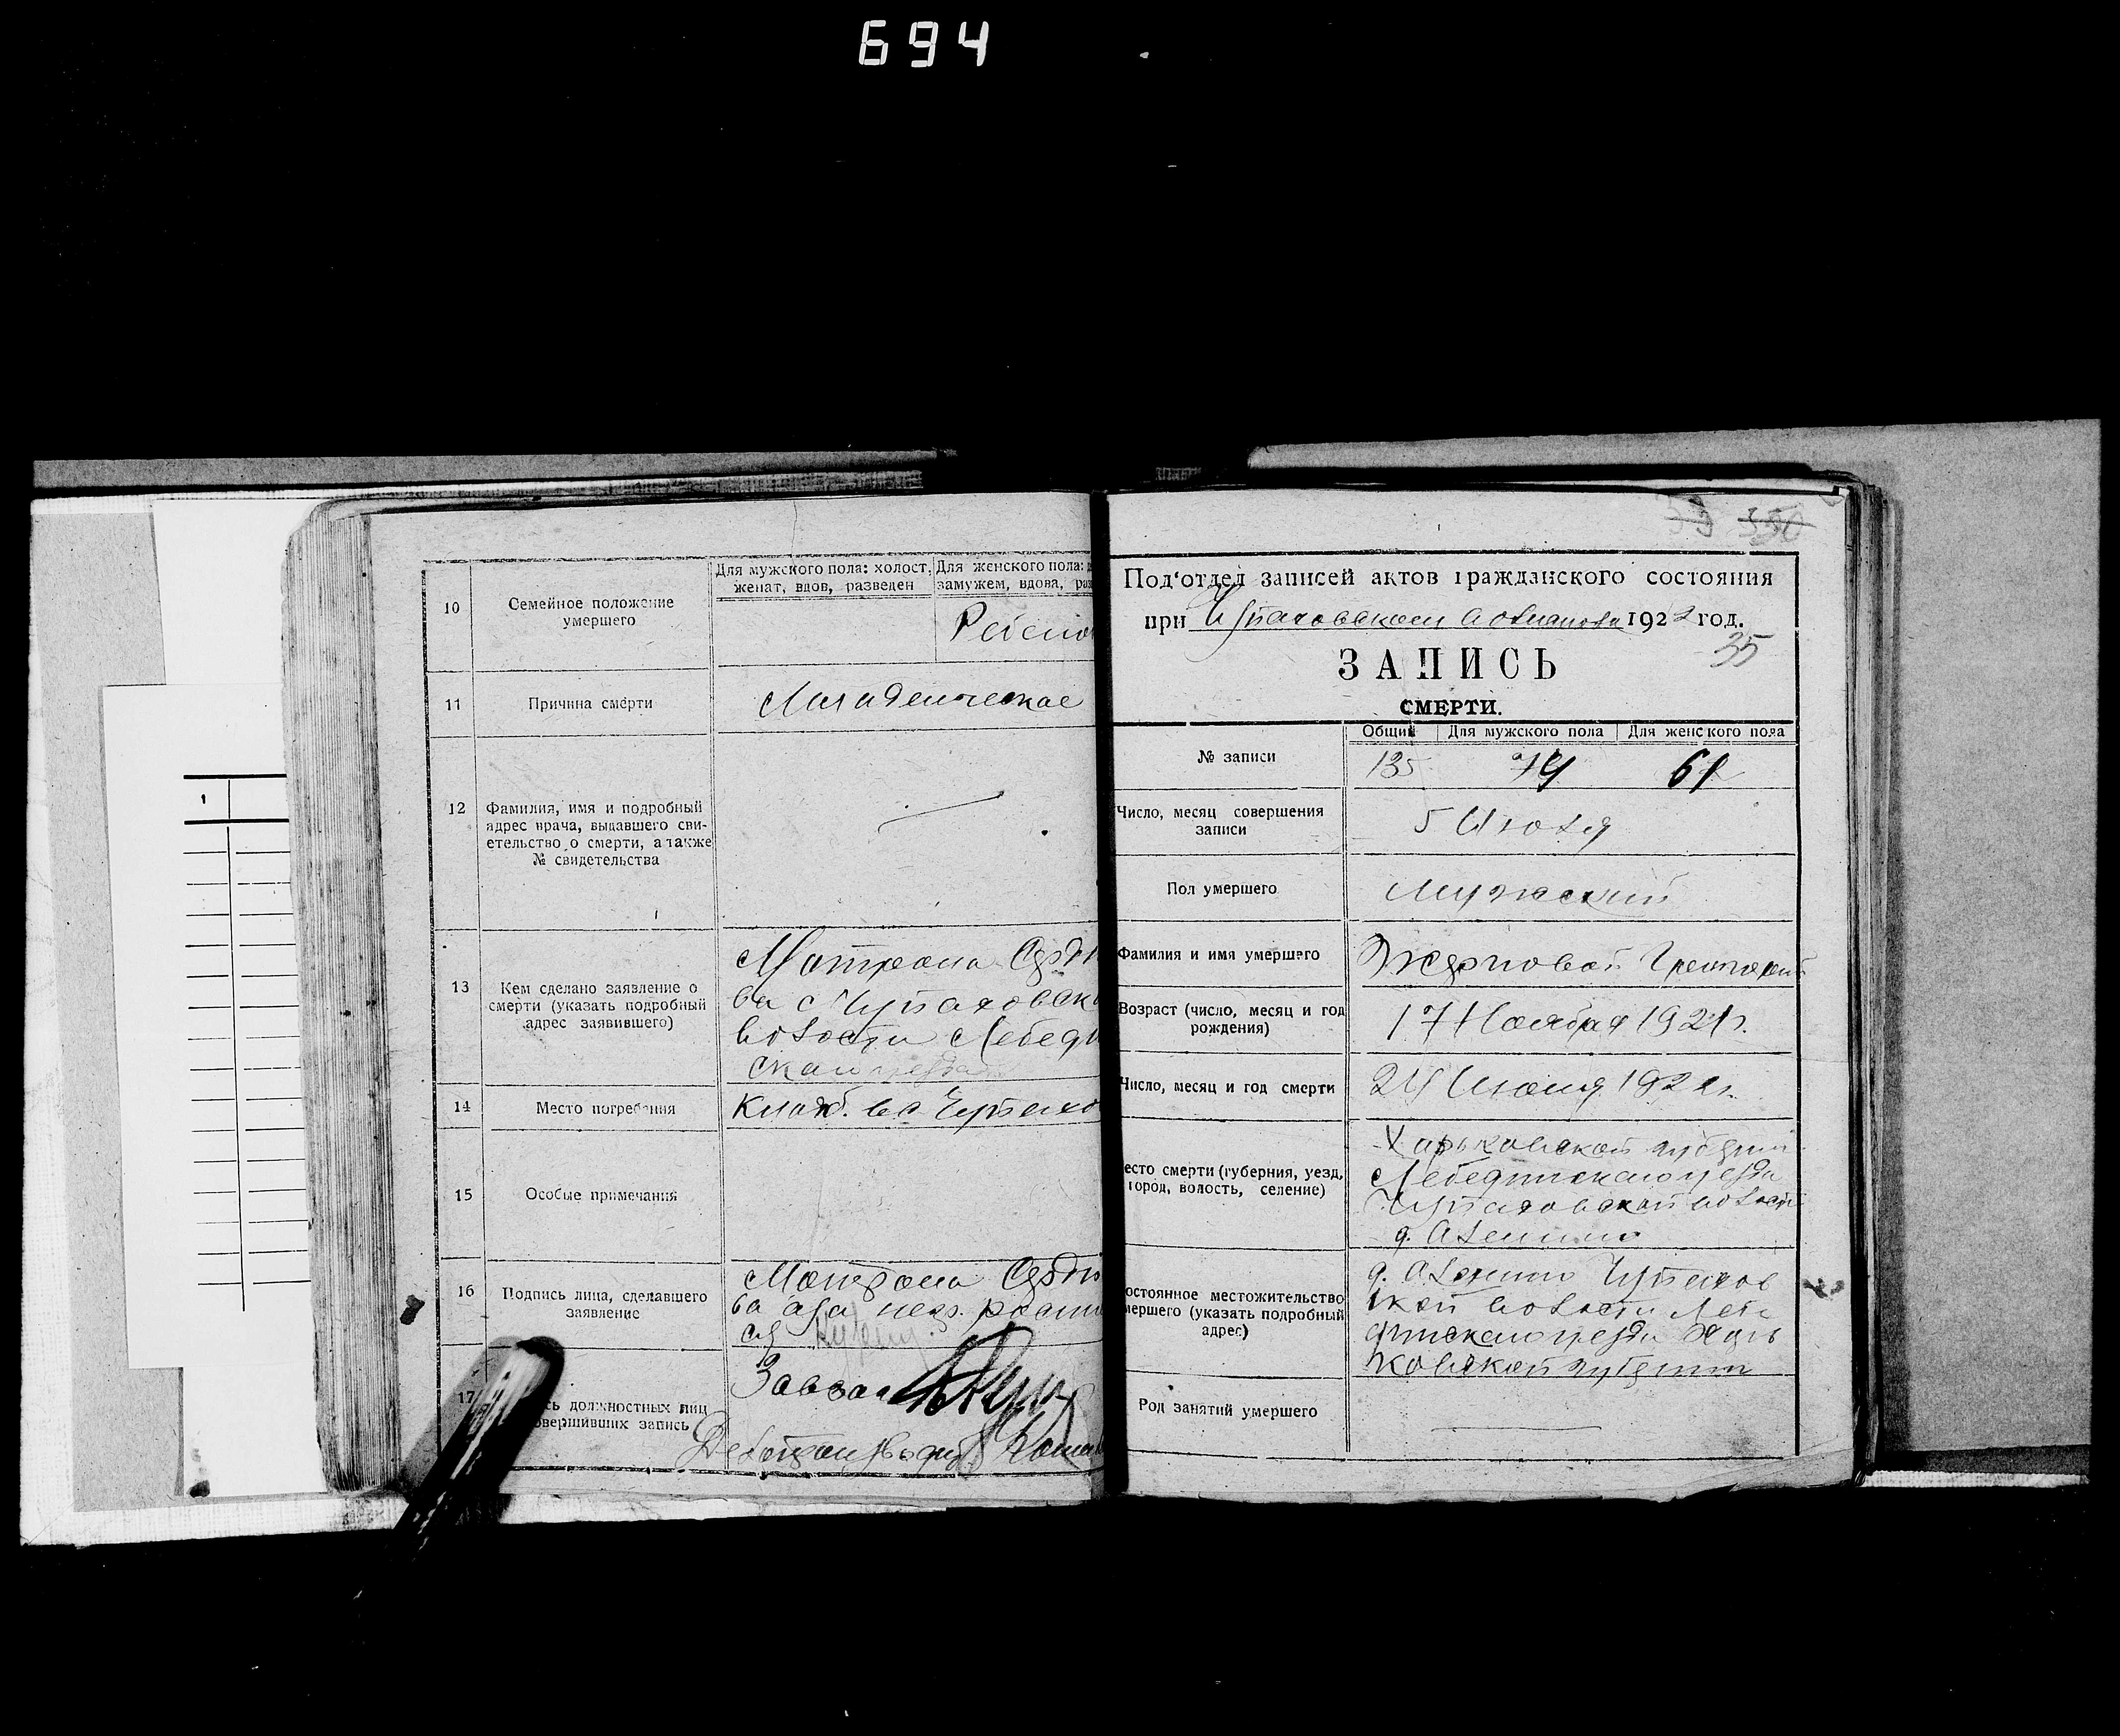 694
10
Семейное положение
умершего
Для мужского пола: холост,
женат, вдов, разведен
Для женского пола:
замужем, вдова, раз
11
Причина смерти
Младенческае
12
Фамилия, имя и подробный
адрес врача, выдавшего сви-
етельство о смерти, а также
№ свидетельства
13
Кем сделано заявление о
смерти (указать подробный
адрес заявившего)
Матрона
ва с Чупаховск
волости Лебеди
скаго уезда
14
Место погребения
Кладб. в с Чупахо
15
Особые примечания
16
Подпись лица, сделавшего
заявление
Матрона
ва а за негр.
17
сь должностных лиц
овершивших запись
Завзаг
Делопроизвод
35
Под'отдел записей актов гражданского состояния
при Чупаховском волиспол 1922 год.
35
ЗАПИСЬ
СМЕРТИ.
№ записи
Общий
Для мужского пола
Для женского пола
135
74
61
Число, месяц совершения
записи
5 Июля
Пол умершего
Мужеский
Фамилия и имя умершего
Григорий
Возраст (число, месяц и год
рождения)
17 Ноября 1921 г.
Число, месяц и год смерти
24 Июня 1922 г.
есто смерти (губерния, уезд,
город, волость, селение)
Харьковской губернии
Лебединскаго уезда
Чупаховской волости
д. Алешино
остоянное местожительство
мершего (указать подробный
адрес)
д. Алешино Чупахов
ской волости Лебе
динскаго уезда Харь
ковской губернии
Род занятий умершего
1